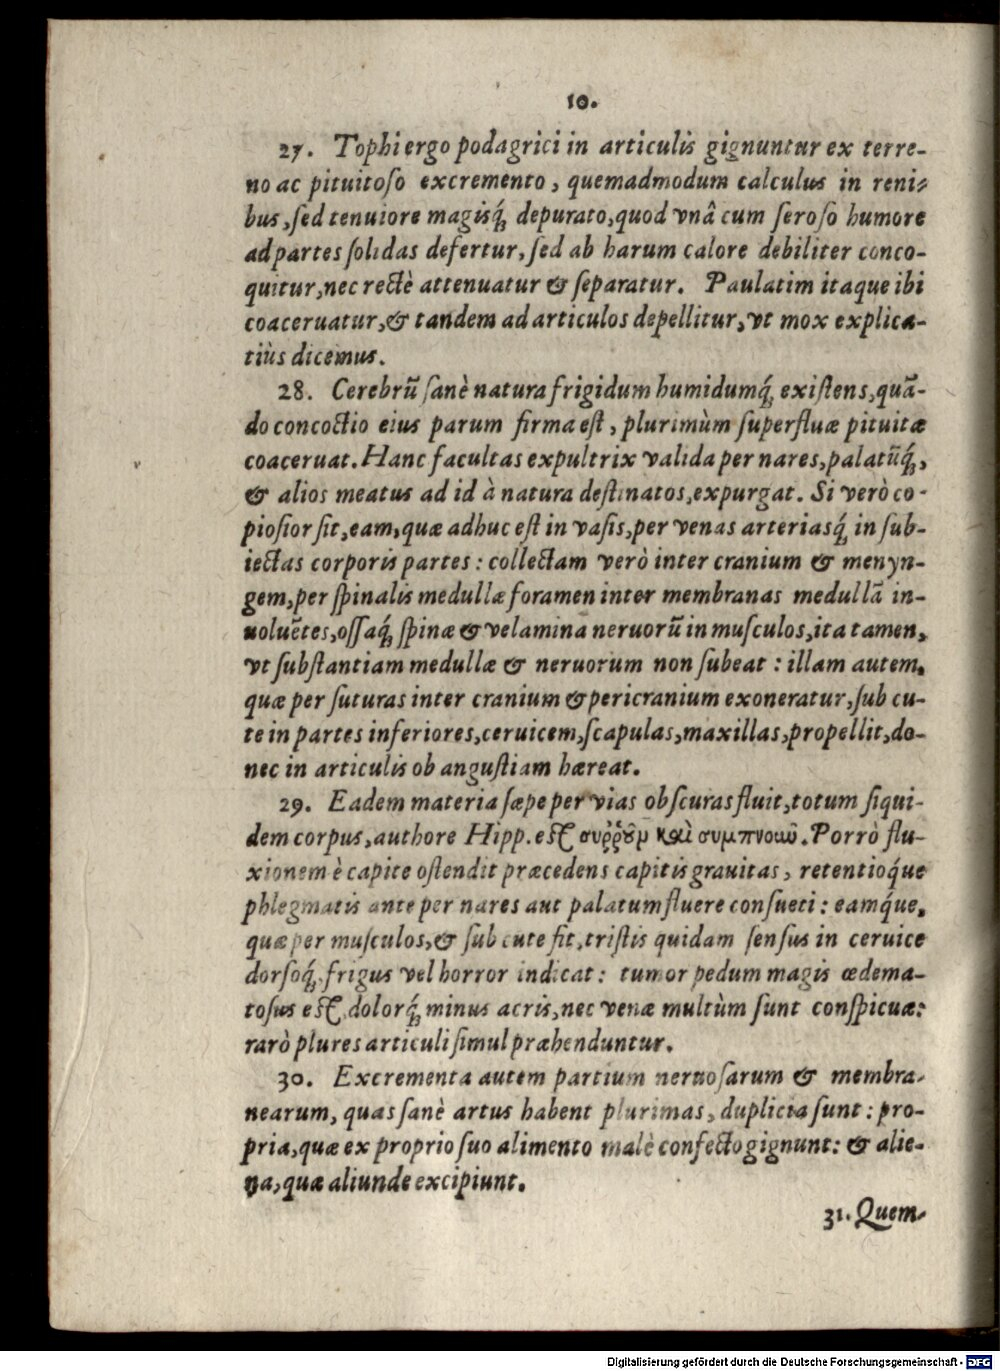 10.
27. Tophi ergo podagrici in articulis gignuntur ex terre-
no ac pituitoſo excremento, quemadmodum calculus in reni-
bus, ſed tenuiore magisq́; depurato, quod vnâ cum ſeroſo humore
ad partes ſolidas defertur, ſed ab harum calore debiliter conco-
quitur, nec rectè attenuatur & ſeparatur. Paulatim itaque ibi
coaceruatur, & tandem ad articulos depellitur, vt mox explica-
tiùs dicemus.
28. Cerebrũ ſanè natura frigidum humidumq́; exiſtens, quã-
do concoctio eius parum firma eſt, plurimùm ſuperfluæ pituitæ
coaceruat. Hanc facultas expultrix valida per nares, palatũq́;,
& alios meatus ad id à natura deſtinatos, expurgat. Si verò co-
pioſior ſit, eam, quæ adhuc eſt in vaſis, per venas arteriasq́; in ſub-
iectas corporis partes: collectam verò inter cranium & menyn-
gem, per ſpinalis medullæ foramen inter membranas medullã in-
uoluẽtes, oſſaq́; ſpinæ & velamina neruorũ in muſculos, ita tamen,
vt ſubſtantiam medullæ & neruorum non ſubeat: illam autem,
quæ per ſuturas inter cranium & pericranium exoneratur, ſub cu-
te in partes inferiores, ceruicem, ſcapulas, maxillas, propellit, do-
nec in articulis ob anguſtiam hæreat.
29. Eadem materia ſæpe per vias obſcuras fluit, totum ſiqui-
dem corpus, authore Hipp. eſt σύῤῥουν καὶ συμπνοιῶ. Porrò flu-
xionem è capite oſtendit præcedens capitis grauitas, retentioq́ue
phlegmatis ante per nares aut palatum fluere conſueti: eamq́ue,
quæ per muſculos, & ſub cute fit, triſtis quidam ſenſus in ceruice
dorſoq́; frigus vel horror indicat: tumor pedum magis œdema-
toſus eſt, dolorq́; minus acris, nec venæ multùm ſunt conſpicuæ:
rarò plures articuli ſimul præhenduntur.
30. Excrementa autem partium neruoſarum & membra-
nearum, quas ſanè artus habent plurimas, duplicia ſunt: pro-
pria, quæ ex proprio ſuo alimento malè confecto gignunt: & alie-
na, quæ aliunde excipiunt.
31. Quem-
Digitalisierung gefördert durch die Deutsche Forschungsgemeinschaft - DFG